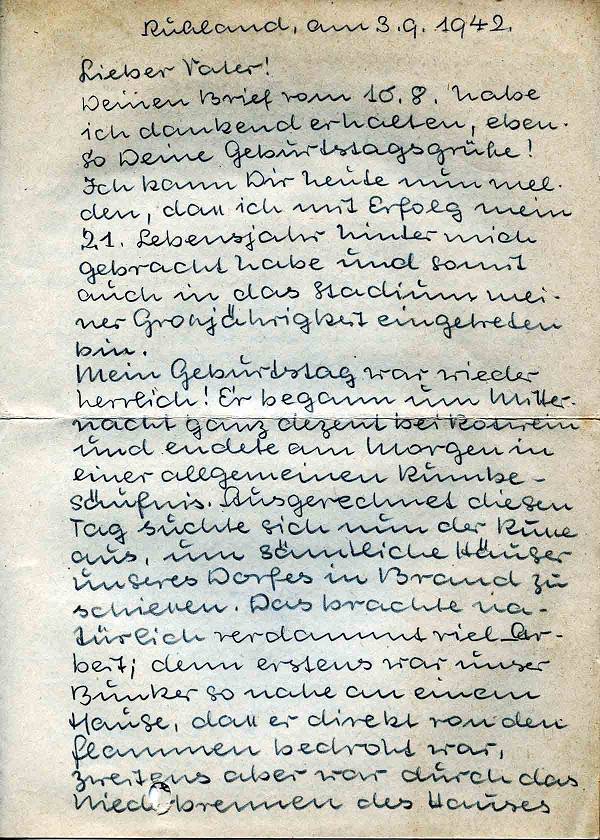 Rußland, am 3.9.1942.
Lieber Vater!
Deinen Brief vom 16.8. habe
ich dankend erhalten, eben-
so Deine Geburtstagsgrüße!
Ich kann Dir heute nun mel-
den, daß ich mit Erfolg mein
21. Lebensjahr hinter mich
gebracht habe und somit
auch in das Stadium mei-
ner Großjährigkeit eingetreten
bin.
Mein Geburtstag war wieder
herrlich! Er begann um Mitter-
nacht ganz dezent bei Rotwein
und endete am Morgen in
einer allgemeinen Rumbe-
säufnis. Ausgerechnet diesen
Tag suchte sich nun der Russe
aus, um sämtliche Häuser
unseres Dorfes in Brand zu
schießen. Das brachte na-
türlich verdammt viel Ar-
beit; denn erstens war unser
Bunker so nahe an einem
Hause, daß er direkt von den
Flammen bedroht war,
zweitens aber war durch das
Niederbrennen des Hauses